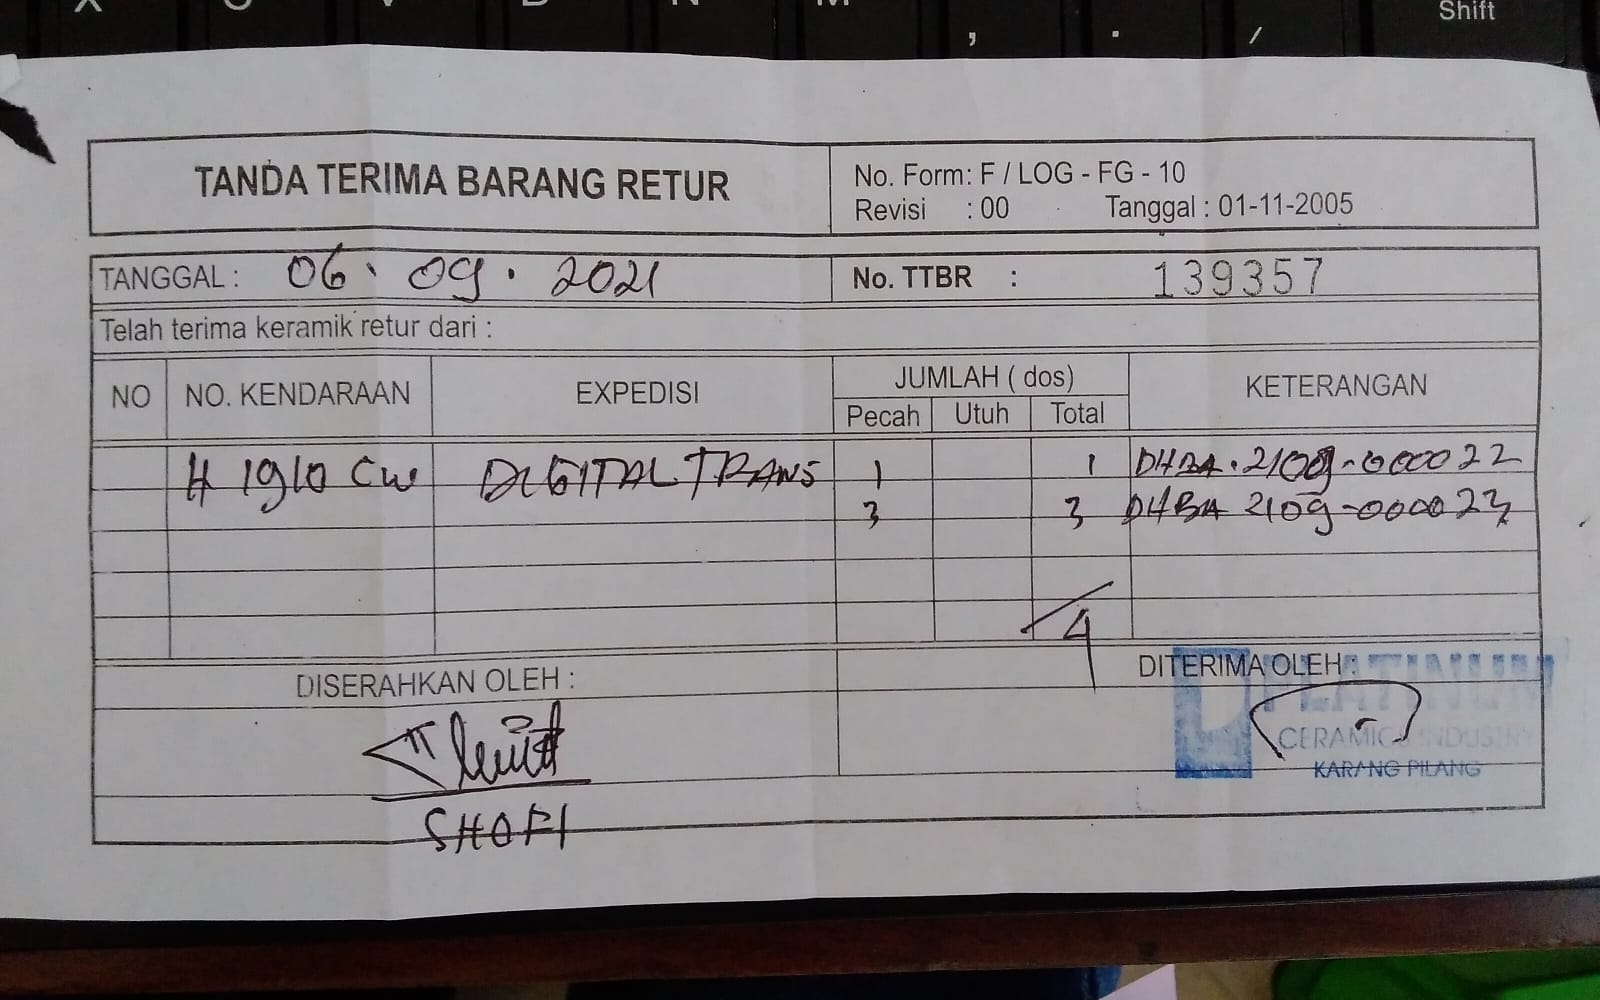 Shift
TANDA TERIMA BARANG RETUR
No. Form: F / LOG - FG - 10
Revisi : 00 Tanggal : 01-11-2005
TANGGAL : 06. 09. 2021
No. TTBR : 139357
Telah terima keramik retur dari :
NO NO. KENDARAAN EXPEDISI JUMLAH ( dos) KETERANGAN
Pecah Utuh Total
H 1910 CW DIGITAL TRANS 1 1 DHBA. 2109-000022
3 3 DHBA 2109-000023
4
DISERAHKAN OLEH :
DITERIMA OLEH :
PLATINUM
CERAMICS INDUSTRY
KARANG PILANG
SHOFI